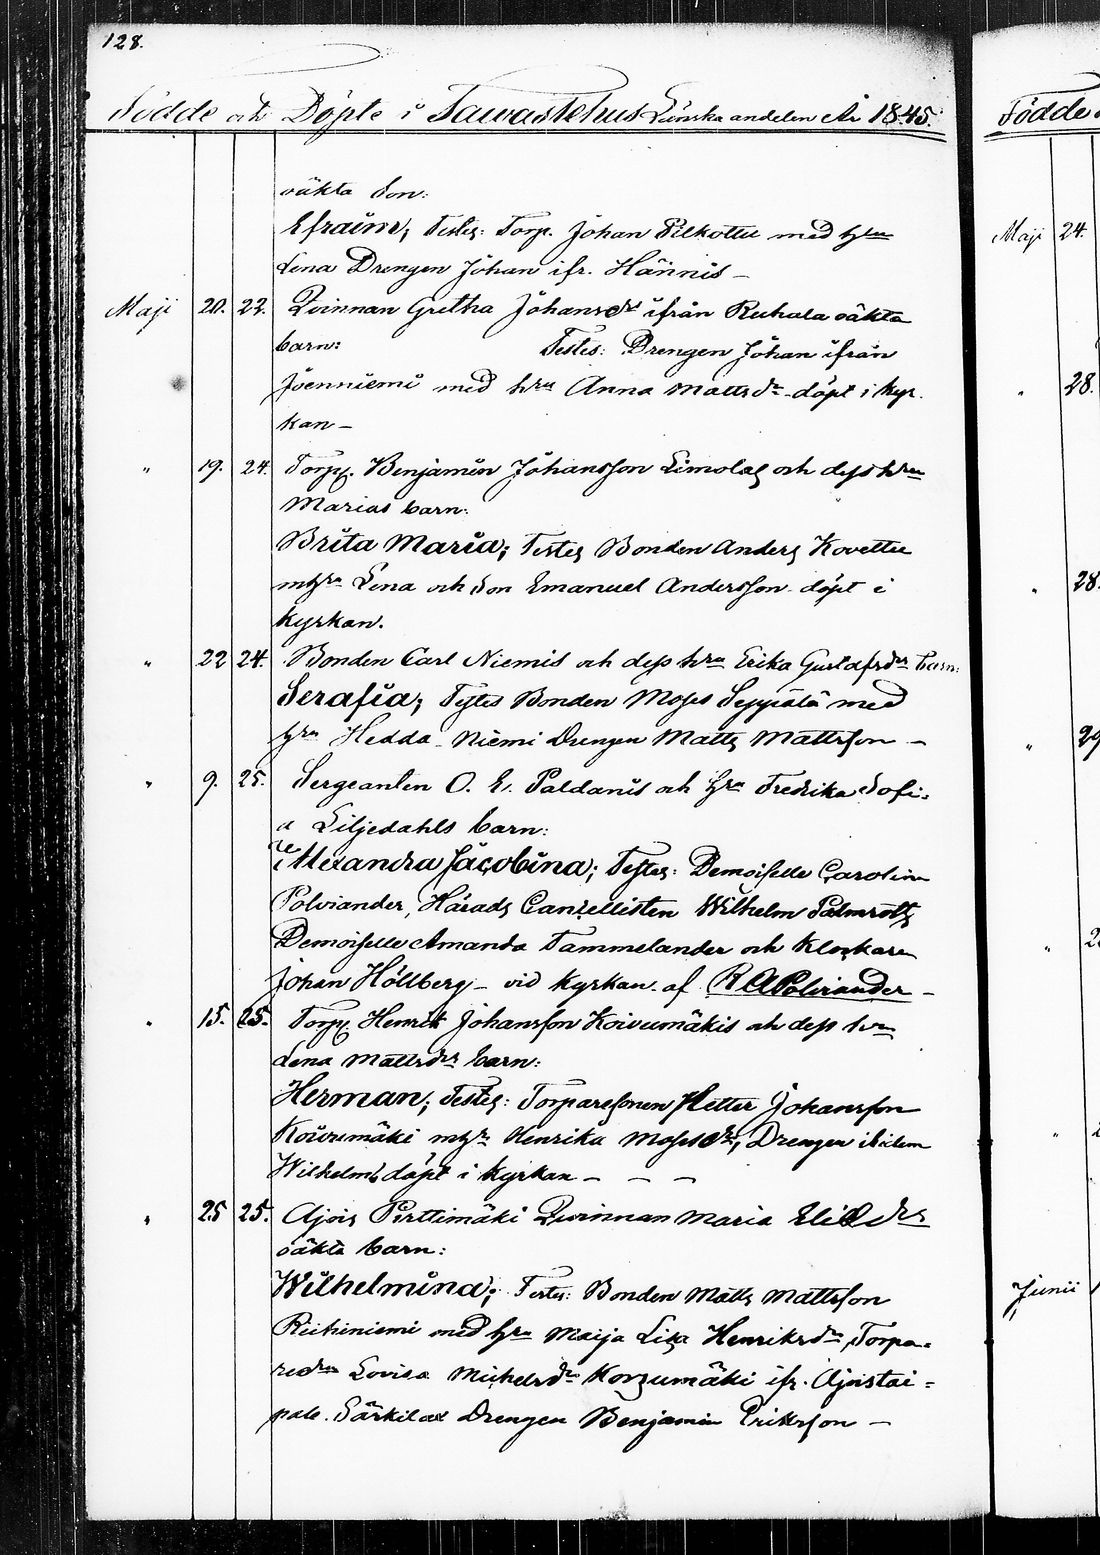 128.
Födde och Döpte i Tawastehus Länska andelen År 1845.
oäkta Son:
Efraim; Testes: Torp. Johan Pilkottu med hru
Lena Drengen Johan ifr. Hännis –
Maji 20. 22. Qvinnan Gretha Johansdr ifrån Ruhala oäkta
barn: Testes: Drengen Johan ifrån
Joenniemi med hru Anna Mattsdr döpt i kyr.
kan –
" 19. 24. Torp. Benjamin Johansson Simolas och dess hru
Marias barn:
Brita Maria; Testes Bonden Anders Kovettu
mhru Lena och Son Emanuel Andersson döpt i
kyrkan.
" 22 24. Bonden Carl Niemis och dess hru Erika Gustafsdrs barn:
Serafia; Testes Bonden Moses Seppälä med
hru Hedda Niemi Drengen Matts Mattsson –
" 9. 25. Sergeanten O. E. Paldanis och hru Fredrika Sofi-
a Liljedahls barn:
Alexandra Jacobina; Testes: Demoiselle Carolina
Polviander, Härads Cantzellisten Wilhelm Palmroth
Demoiselle Amanda Tammelander och Klockaren
Johan Höllberg – vid kyrkan af R A Polviander –
" 15. 25. Torp. Henrik Johansson Koivumäkis och dess hru
Lena Mattsdrs barn:
Herman; Testes: Torparesonen Petter Johansson
Koivumäki mhru Henrika Mosesdr, Drengen ibidem
Wilhelm, döpt i kyrkan – – –
" 25 25. Ajois Perttimäki Qvinnan Maria Eliædrs
oäkta barn:
Wilhelmina; Testes: Bonden Matts Mattsson
Riihiniemi med hru Maija Lisa Henriksdr, Torpa-
redrn Lovisa Michelsdr Korsumäki ifr. Ajoistai-
pale. Särkilax Drengen Benjamin Eriksson –
Födde
Maji 24.
" 28.
" 28.
" 29
"
"
Junii